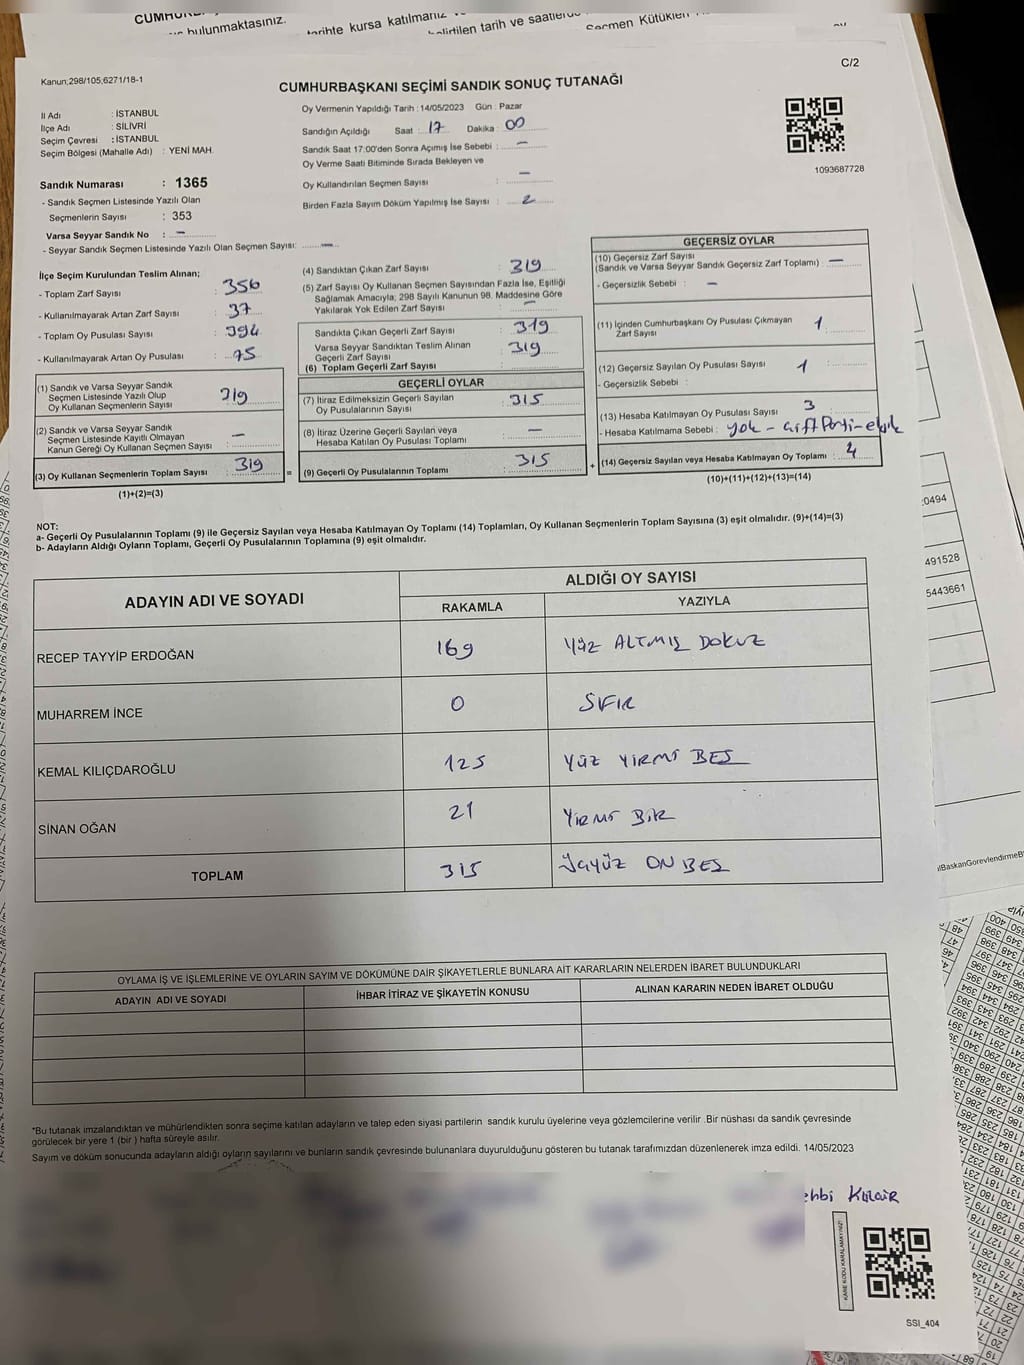 CUMHUR
bulunmaktasınız.
tarihte kursa katılmanız
belirtilen tarih ve saatlerde
Seçmen Kütükleri
Kanun;298/105,6271/18-1
C/2
CUMHURBAŞKANI SEÇİMİ SANDIK SONUÇ TUTANAĞI
İl Adı : İSTANBUL
İlçe Adı : SİLİVRİ
Seçim Çevresi : İSTANBUL
Seçim Bölgesi (Mahalle Adı) : YENİ MAH.
Oy Vermenin Yapıldığı Tarih : 14/05/2023 Gün : Pazar
Sandığın Açıldığı Saat : 17 Dakika : 00
Sandık Saat 17:00'den Sonra Açımış İse Sebebi : —
Oy Verme Saati Bitiminde Sırada Bekleyen ve
Oy Kullandırılan Seçmen Sayısı : —
Birden Fazla Sayım Döküm Yapılmış İse Sayısı : 2
1093687728
Sandık Numarası : 1365
- Sandık Seçmen Listesinde Yazılı Olan
Seçmenlerin Sayısı : 353
Varsa Seyyar Sandık No : —
- Seyyar Sandık Seçmen Listesinde Yazılı Olan Seçmen Sayısı: —
İlçe Seçim Kurulundan Teslim Alınan;
- Toplam Zarf Sayısı : 356
- Kullanılmayarak Artan Zarf Sayısı : 37
- Toplam Oy Pusulası Sayısı : 394
- Kullanılmayarak Artan Oy Pusulası : 75
(1) Sandık ve Varsa Seyyar Sandık
Seçmen Listesinde Yazılı Olup
Oy Kullanan Seçmenlerin Sayısı 319
(2) Sandık ve Varsa Seyyar Sandık
Seçmen Listesinde Kayıtlı Olmayan
Kanun Gereği Oy Kullanan Seçmen Sayısı : —
(3) Oy Kullanan Seçmenlerin Toplam Sayısı : 319
(1)+(2)=(3)
=
(4) Sandıktan Çıkan Zarf Sayısı : 319
(5) Zarf Sayısı Oy Kullanan Seçmen Sayısından Fazla İse, Eşitliği
Sağlamak Amacıyla; 298 Sayılı Kanunun 98. Maddesine Göre
Yakılarak Yok Edilen Zarf Sayısı : —
Sandıkta Çıkan Geçerli Zarf Sayısı : 319
Varsa Seyyar Sandıktan Teslim Alınan 319
Geçerli Zarf Sayısı :
(6) Toplam Geçerli Zarf Sayısı :
GEÇERLİ OYLAR
(7) İtiraz Edilmeksizin Geçerli Sayılan
Oy Pusulalarının Sayısı : 315
(8) İtiraz Üzerine Geçerli Sayılan veya
Hesaba Katılan Oy Pusulası Toplamı : —
(9) Geçerli Oy Pusulalarının Toplamı : 315
+
GEÇERSİZ OYLAR
(10) Geçersiz Zarf Sayısı
(Sandık ve Varsa Seyyar Sandık Geçersiz Zarf Toplamı) : —
- Geçersizlik Sebebi : —
(11) İçinden Cumhurbaşkanı Oy Pusulası Çıkmayan
Zarf Sayısı : 1
(12) Geçersiz Sayılan Oy Pusulası Sayısı : 1
- Geçersizlik Sebebi :
(13) Hesaba Katılmayan Oy Pusulası Sayısı : 3
- Hesaba Katılmama Sebebi : yok - çift Parti - eksik
(14) Geçersiz Sayılan veya Hesaba Katılmayan Oy Toplamı : 4
(10)+(11)+(12)+(13)=(14)
NOT:
a- Geçerli Oy Pusulalarının Toplamı (9) ile Geçersiz Sayılan veya Hesaba Katılmayan Oy Toplamı (14) Toplamları, Oy Kullanan Seçmenlerin Toplam Sayısına (3) eşit olmalıdır. (9)+(14)=(3)
b- Adayların Aldığı Oyların Toplamı, Geçerli Oy Pusulalarının Toplamına (9) eşit olmalıdır.
ADAYIN ADI VE SOYADI
ALDIĞI OY SAYISI
RAKAMLA YAZIYLA
RECEP TAYYİP ERDOĞAN 169 YÜZ ALTMIŞ DOKUZ
MUHARREM İNCE 0 SIFIR
KEMAL KILIÇDAROĞLU 125 YÜZ YİRMİ BEŞ
SİNAN OĞAN 21 YİRMİ BİR
TOPLAM 315 ÜÇYÜZ ON BEŞ
OYLAMA İŞ VE İŞLEMLERİNE VE OYLARIN SAYIM VE DÖKÜMÜNE DAİR ŞİKAYETLERLE BUNLARA AİT KARARLARIN NELERDEN İBARET BULUNDUKLARI
ADAYIN ADI VE SOYADI İHBAR İTİRAZ VE ŞİKAYETİN KONUSU ALINAN KARARIN NEDEN İBARET OLDUĞU
*Bu tutanak imzalandıktan ve mühürlendikten sonra seçime katılan adayların ve talep eden siyasi partilerin sandık kurulu üyelerine veya gözlemcilerine verilir .Bir nüshası da sandık çevresinde
görülecek bir yere 1 (bir ) hafta süreyle asılır.
Sayım ve döküm sonucunda adayların aldığı oyların sayılarını ve bunların sandık çevresinde bulunanlara duyurulduğunu gösteren bu tutanak tarafımızdan düzenlenerek imza edildi. 14/05/2023
KARE KODU KARALAMAYINIZ!
SSI_404
0494
491528
5443661
lBaskanGorevlendirmeB